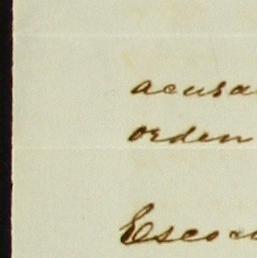 acusa
orden
Escou